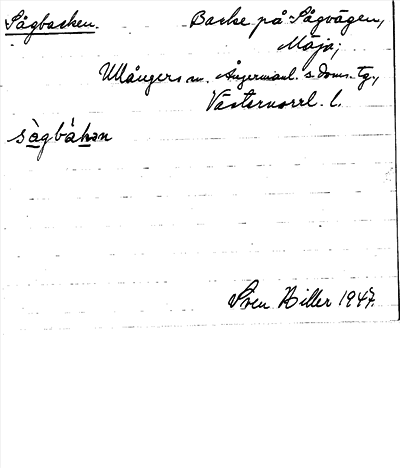 Sågbacken.
Backe på Sågvägen,
Mäja,
Ullångers sn. Ångermanl. s. doms. tg.,
Västernorrl. l.
sàgbàhən
Sven Hiller 1947.